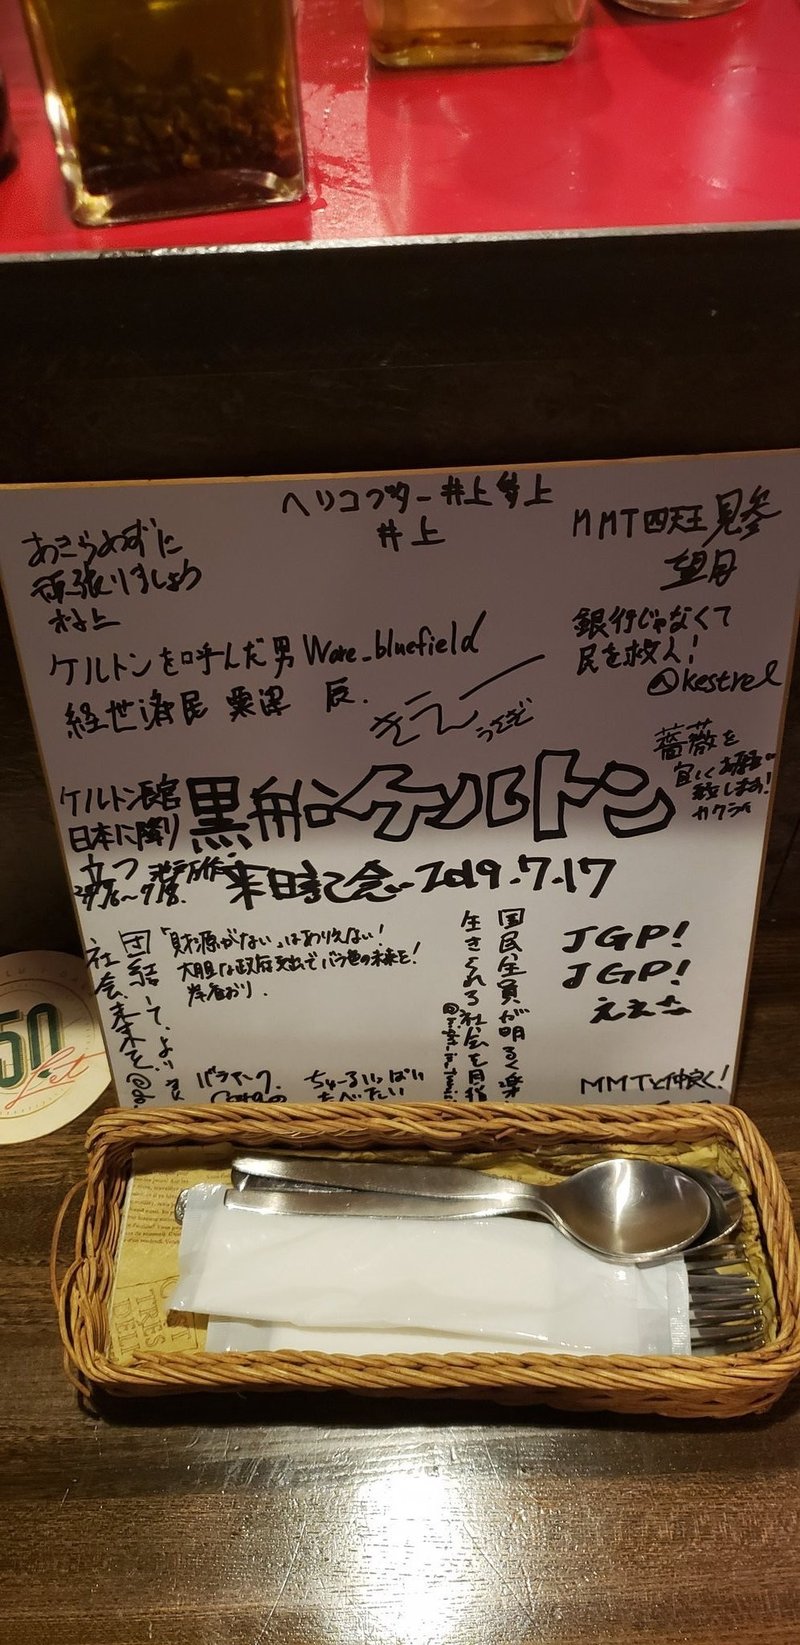 ヘリコプター井上智上
井上
MMT四天王見参
望月
あきらめずに
頑張りましょう
村上
銀行じゃなくて
民を救え!
@kestrel
ケルトンを呼んだ男 Ware_bluefield
経世済民 粟澤 辰.
うさぎ
薔薇を
宜しくお願い
致します!
ケルトン長官
日本に降り
立つ
黒船ケルトン
来日記念 2019.7.17
「財源がない」はありえない!
大胆な政府支出でバラ色の未来を!
団結して、より
社会未来を
国民全員が明るく楽
生きられる社会を目指
JGP!
JGP!
バラマーク
ちゅーるいっぱい
たべたい
MMTと仲良く!
50